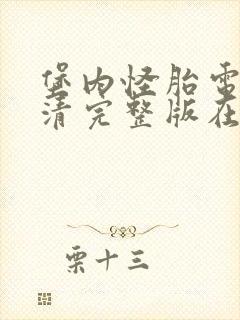 堡内怪胎电
清完整版在
栗十三